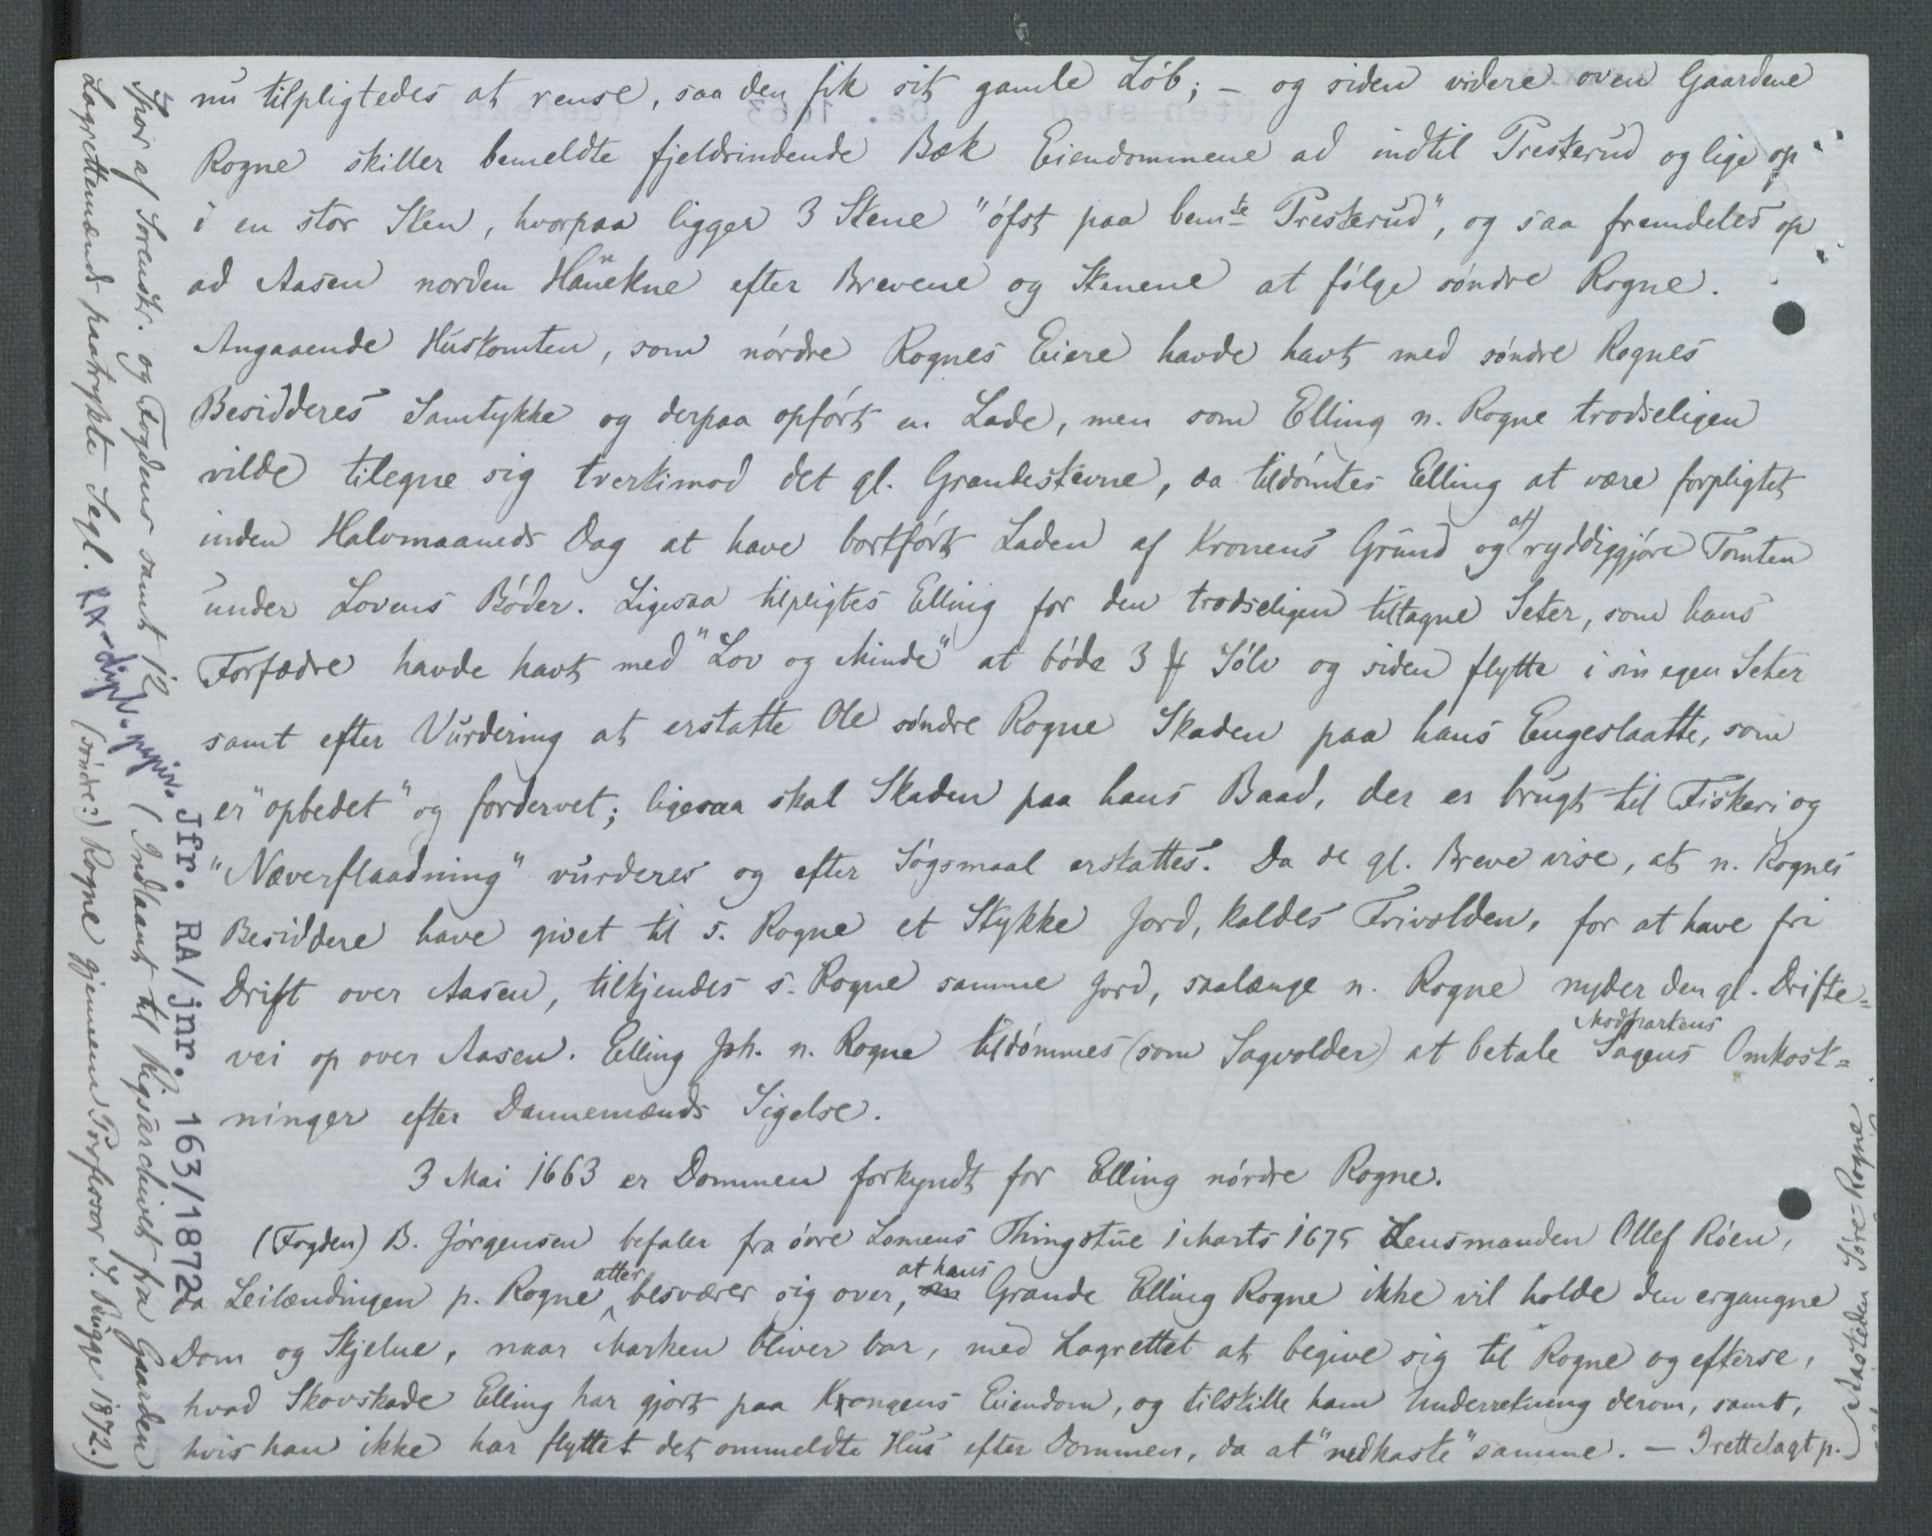 nu tilpligtedes at rense, saa den fik sit gamle Löb; – og siden videre oven Gaardene
Rogne skiller bemeldte fjeldrindende Bæk Eiendommene ad indtil Presterud og lige op
i en stor Sten, hvorpaa ligger 3 Stene "öfst paa bemte Presterud", og saa fremdeles op
ad Aasen norden Hauekne efter Brevene og Stenene at fölge söndre Rogne.
Angaaende Hustomten, som nördre Rognes Eiere havde havt med söndre Rognes
Besidderes Samtykke og derpaa opfört en Lade, men som Elling n. Rogne trodseligen
vilde tilegne sig tvertimod det gl. Grandestevne, da tildömtes Elling at være forpligtet
inden Halvmaaneds Dag at have bortfört Laden af Kronens Grund og at ryddiggjöre Tomten
under Lovens Böder. Ligesaa tilpligtes Elling for den trodseligen tiltagne Seter, som hans
Forfædre havde havt med "Lov og Minde" at böde 3 ℔ Sölv og siden flytte i sin egen Seter
samt efter Vurdering at erstatte Ole söndre Rogne Skaden paa hans Engeslaatte, som
er "opbedet" og fordervet; ligesaa skal Skaden paa hans Baad, der er brugt til Fiskeri og
"Næverflaadning" vurderes og efter Sögsmaal erstattes. Da de gl. Breve vise, at n. Rognes
Besiddere have givet til s. Rogne et Stykke Jord, kaldes Trivolden, for at have fri
Drift over Aasen, tilkjendes s. Rogne samme Jord, saalænge n. Rogne nyder den gl. Drifte=
vei op over Aasen. Elling Joh. n. Rogne tildömmes (som Sagvolder) at betale Modpartens Sagens Omkost=
ninger efter Dannemænds Sigelse.
3 Mai 1663 er Dommen forkyndt for Elling nördre Rogne.
(Fogden) B. Jörgensen befaler fra övre Lomens Thingstue 1 Marts 1675 Lensmanden Ollef Röen,
da Leilændingen p. Rogne atter besværer sig over, at hans Grande Elling Rogne ikke vil holde den ergangne
Dom og Skjelne, naar Marken bliver bar, med Lagrettet at begive sig til Rogne og efterse,
hvad Skovskade Elling har gjort paa Kongens Eiendom, og tilskille ham Underretning derom, samt,
hvis han ikke har flyttet det ommeldte Hus efter Dommen, da at "nedkaste" samme. – Irettelagt p.
Aasteden Söre-Rogne
Spor af Sorenskr. og Fogdens samt 12
Lagrettemænds paatrykte Segl. RA-dipl. papir. (Indlaant til Rigsarchivet fra Gaarden
(söndre?) Rogne gjennem Professor S. Bugge 1872.)
Jfr. RA/jnr. 163/1872
Uten sted
Ca. 1663
(defekt)